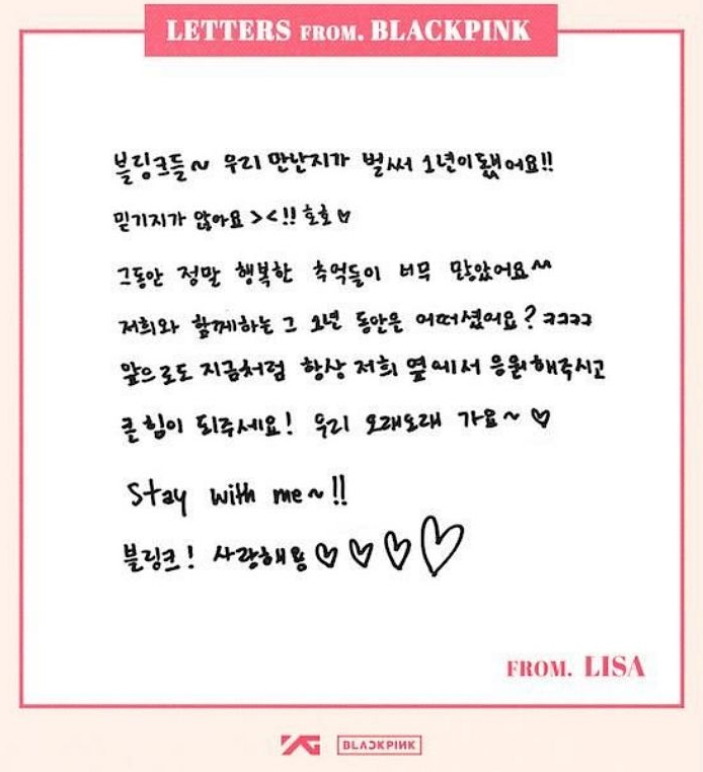 LETTERS FROM. BLACKPINK
블링크들~ 우리 만난지가 벌써 1년이됐어요!!
믿기지가 않아요 ><!! 호호♡
그동안 정말 행복한 추억들이 너무 많았어요^^
저희와 함께하는 그 1년 동안은 어떠셨어요? ㅋㅋㅋㅋ
앞으로도 지금처럼 항상 저희 옆에서 응원해주시고
큰 힘이 되주세요! 우리 오래오래 가요~ ♡
Stay with me~!!
블링크! 사랑해용 ♡ ♡ ♡ ♡
FROM. LISA
YG BLACKPINK